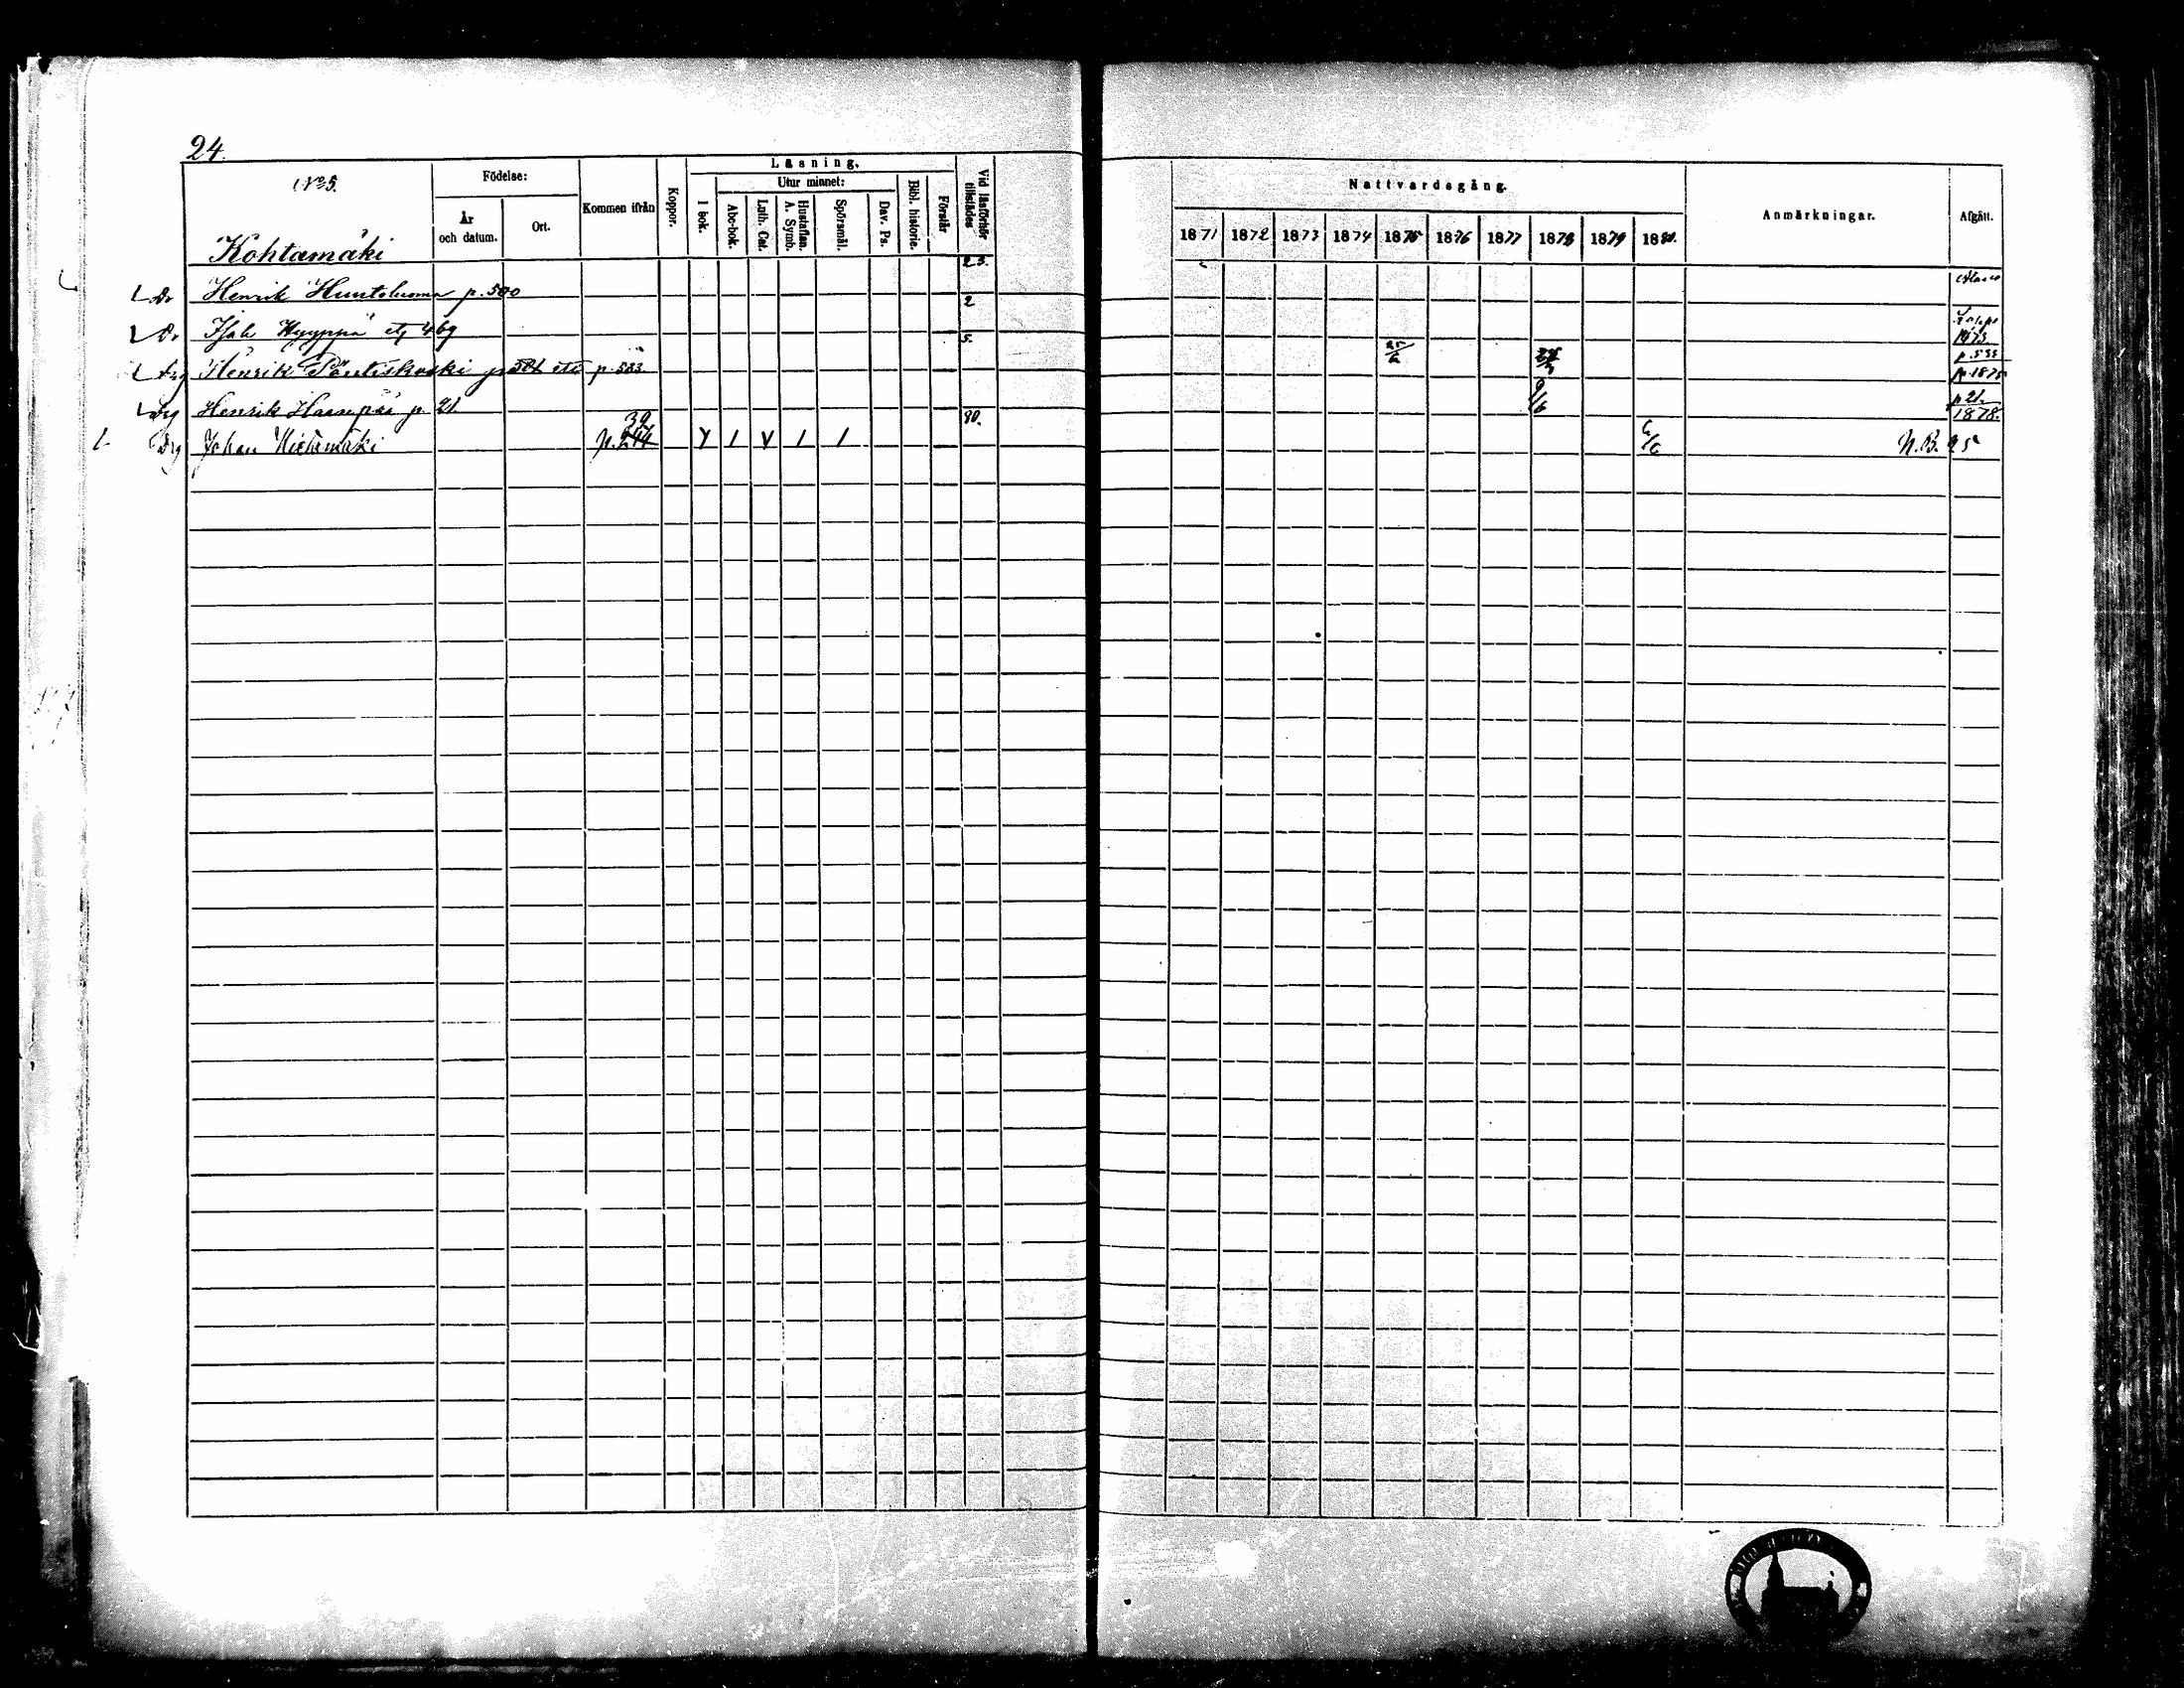 24.
No 5.
Kohtamäki
Födelse:
År
och datum.
Ort.
Kommen ifrån
Koppor.
Läsning.
I bok.
Utur minnet:
Abc-bok.
Luth. Cat.
Hustaflan.
A. Symb.
Spörsmål.
Dav. Ps.
Bibl. historie.
Förstår
Vid läsförhör
tillstädes
Nattvardsgång.
1871 1872 1873 1874 1875 1876 1877 1878 1879 1880.
Anmärkningar.
Afgått.
23.
Dr Henrik Huntoluoma p. 500 2
Dr Isak Hyyppä 469 5.
1873
Henrik Pöntiskoski p. 533 25/6 p. 533
1875
Drg Henrik Haanpää p. 21. 80. 9/6 p 21.
1878.
39
Drg Johan Hietamäki p. 244 N.B. 25